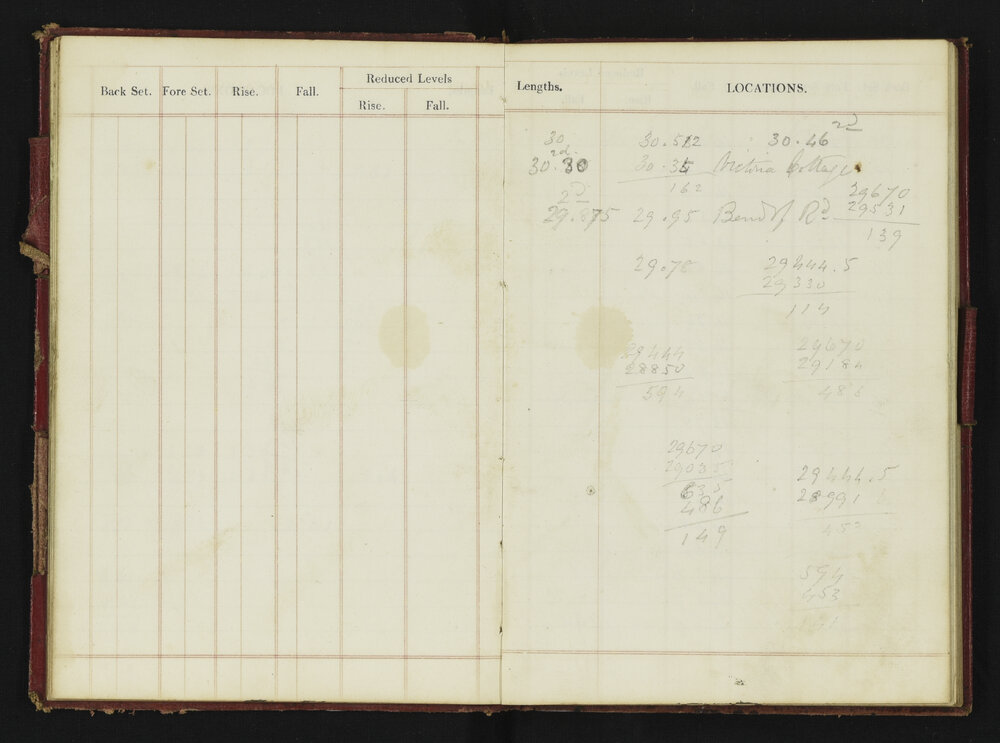 Back Set. Fore Set. Rise. Fall. Reduced Levels
Rise. Fall.
Lengths. LOCATIONS.
30 30.512 30.46 2d
2d
30.30 30.35 Victoria Cottage
162
2d
29.875 29.95 Bend of Rd
29670
29531
139
29.78
29444.5
29330
114
29444
28850
594
29670
29184
486
29670
29035
635
486
149
29444.5
28991
453
594
453
141